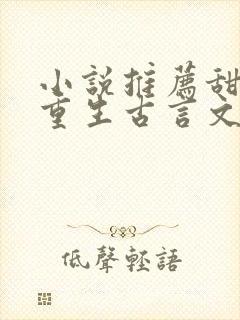 小說推薦甜
重生古言文
低聲輕語